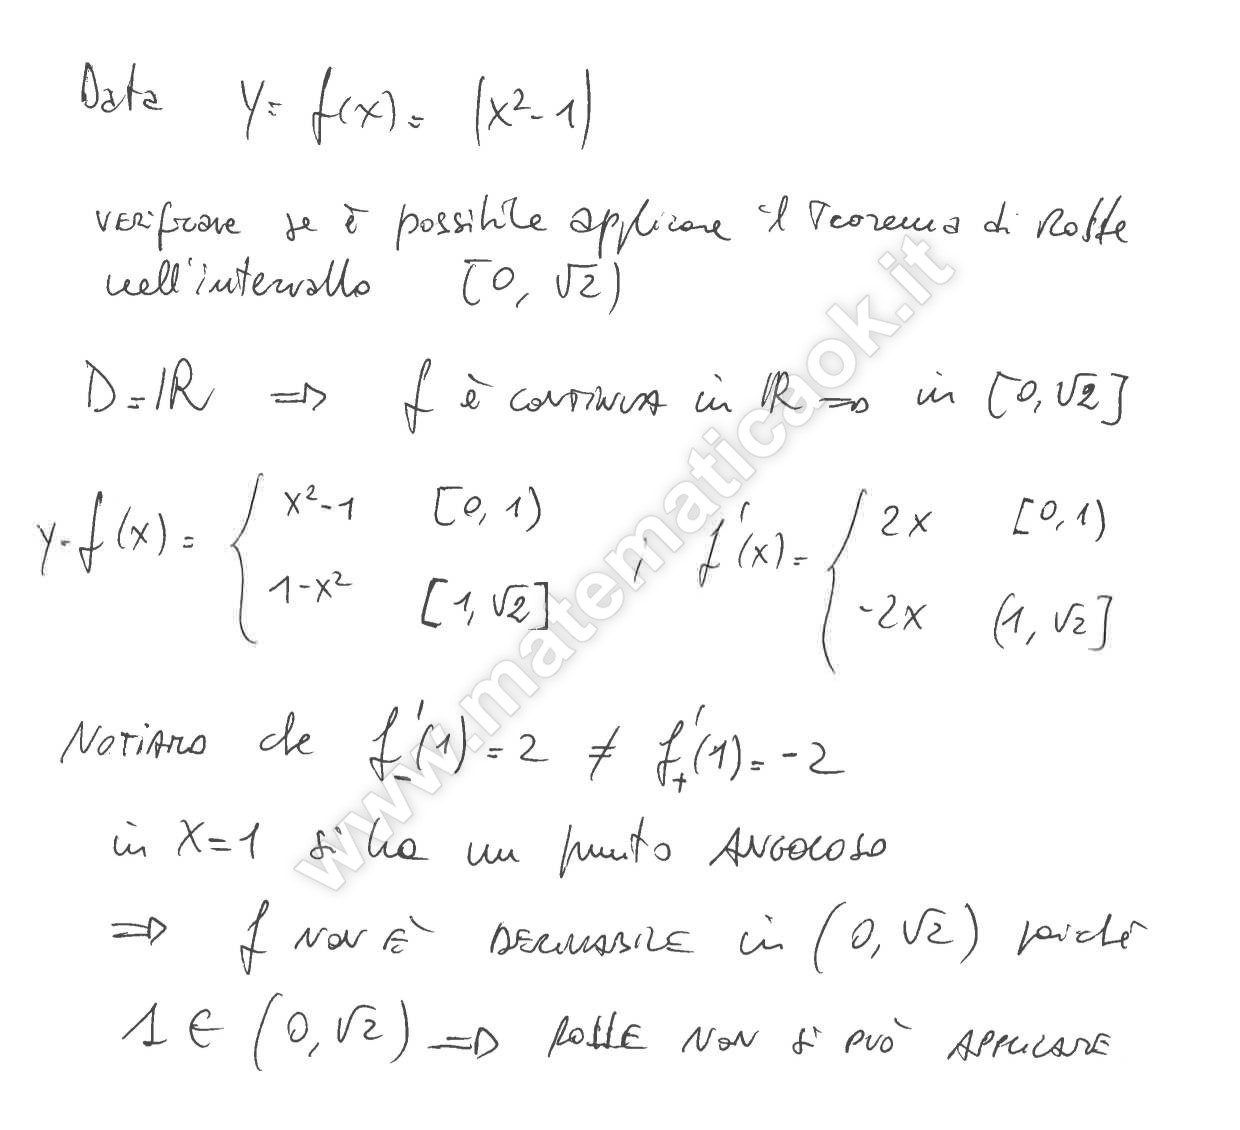 Data y = f(x) = |x²-1|
VERificare se è possibile applicare il Teorema di Rolle
nell'intervallo [0, √2)
D = ℝ ⇒ f è CONTINUA in ℝ ⇒ in [0, √2]
y = f(x) = { x²-1 [0, 1) ; 1-x² [1, √2] ; f'(x) = { 2x [0, 1) ; -2x (1, √2]
NOTIAMO che f₋'(1) = 2 ≠ f₊'(1) = -2
in x = 1 si ha un punto ANGOLOSO
⇒ f NON È DERIVABILE in (0, √2) poiché
1 ∈ (0, √2) ⇒ ROLLE NON si PUÒ APPLICARE
www.matematicaok.it